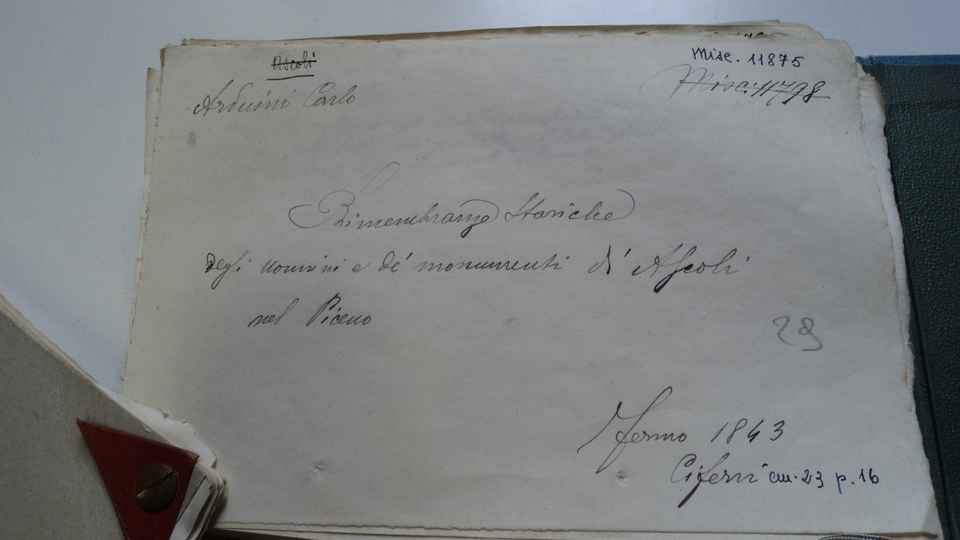 Ascoli
Misc. 11875
Arduini Carlo
Misc. 11798
Rimembranze Storiche
degli uomini e de' monumenti di Ascoli
nel Piceno
29
Fermo 1843
Ciferri cm. 23 p. 16